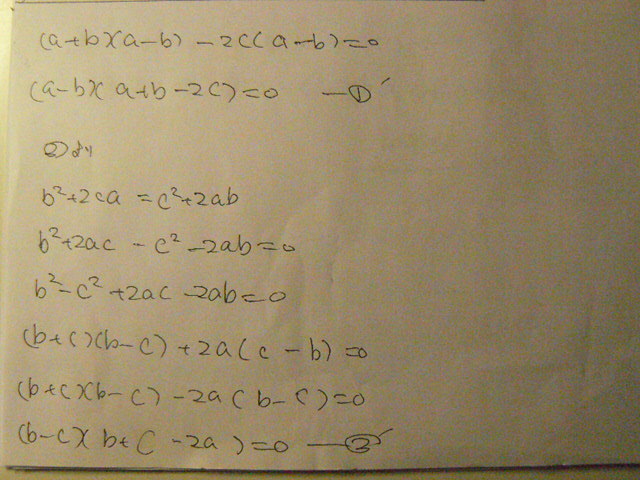 (a+b)(a-b) -2c(a-b)=0
(a-b)(a+b-2c)=0 —①'
②より
b²+2ca =c²+2ab
b²+2ac -c² -2ab=0
b²-c²+2ac-2ab=0
(b+c)(b-c)+2a(c-b)=0
(b+c)(b-c)-2a(b-c)=0
(b-c)(b+c-2a)=0 —②'